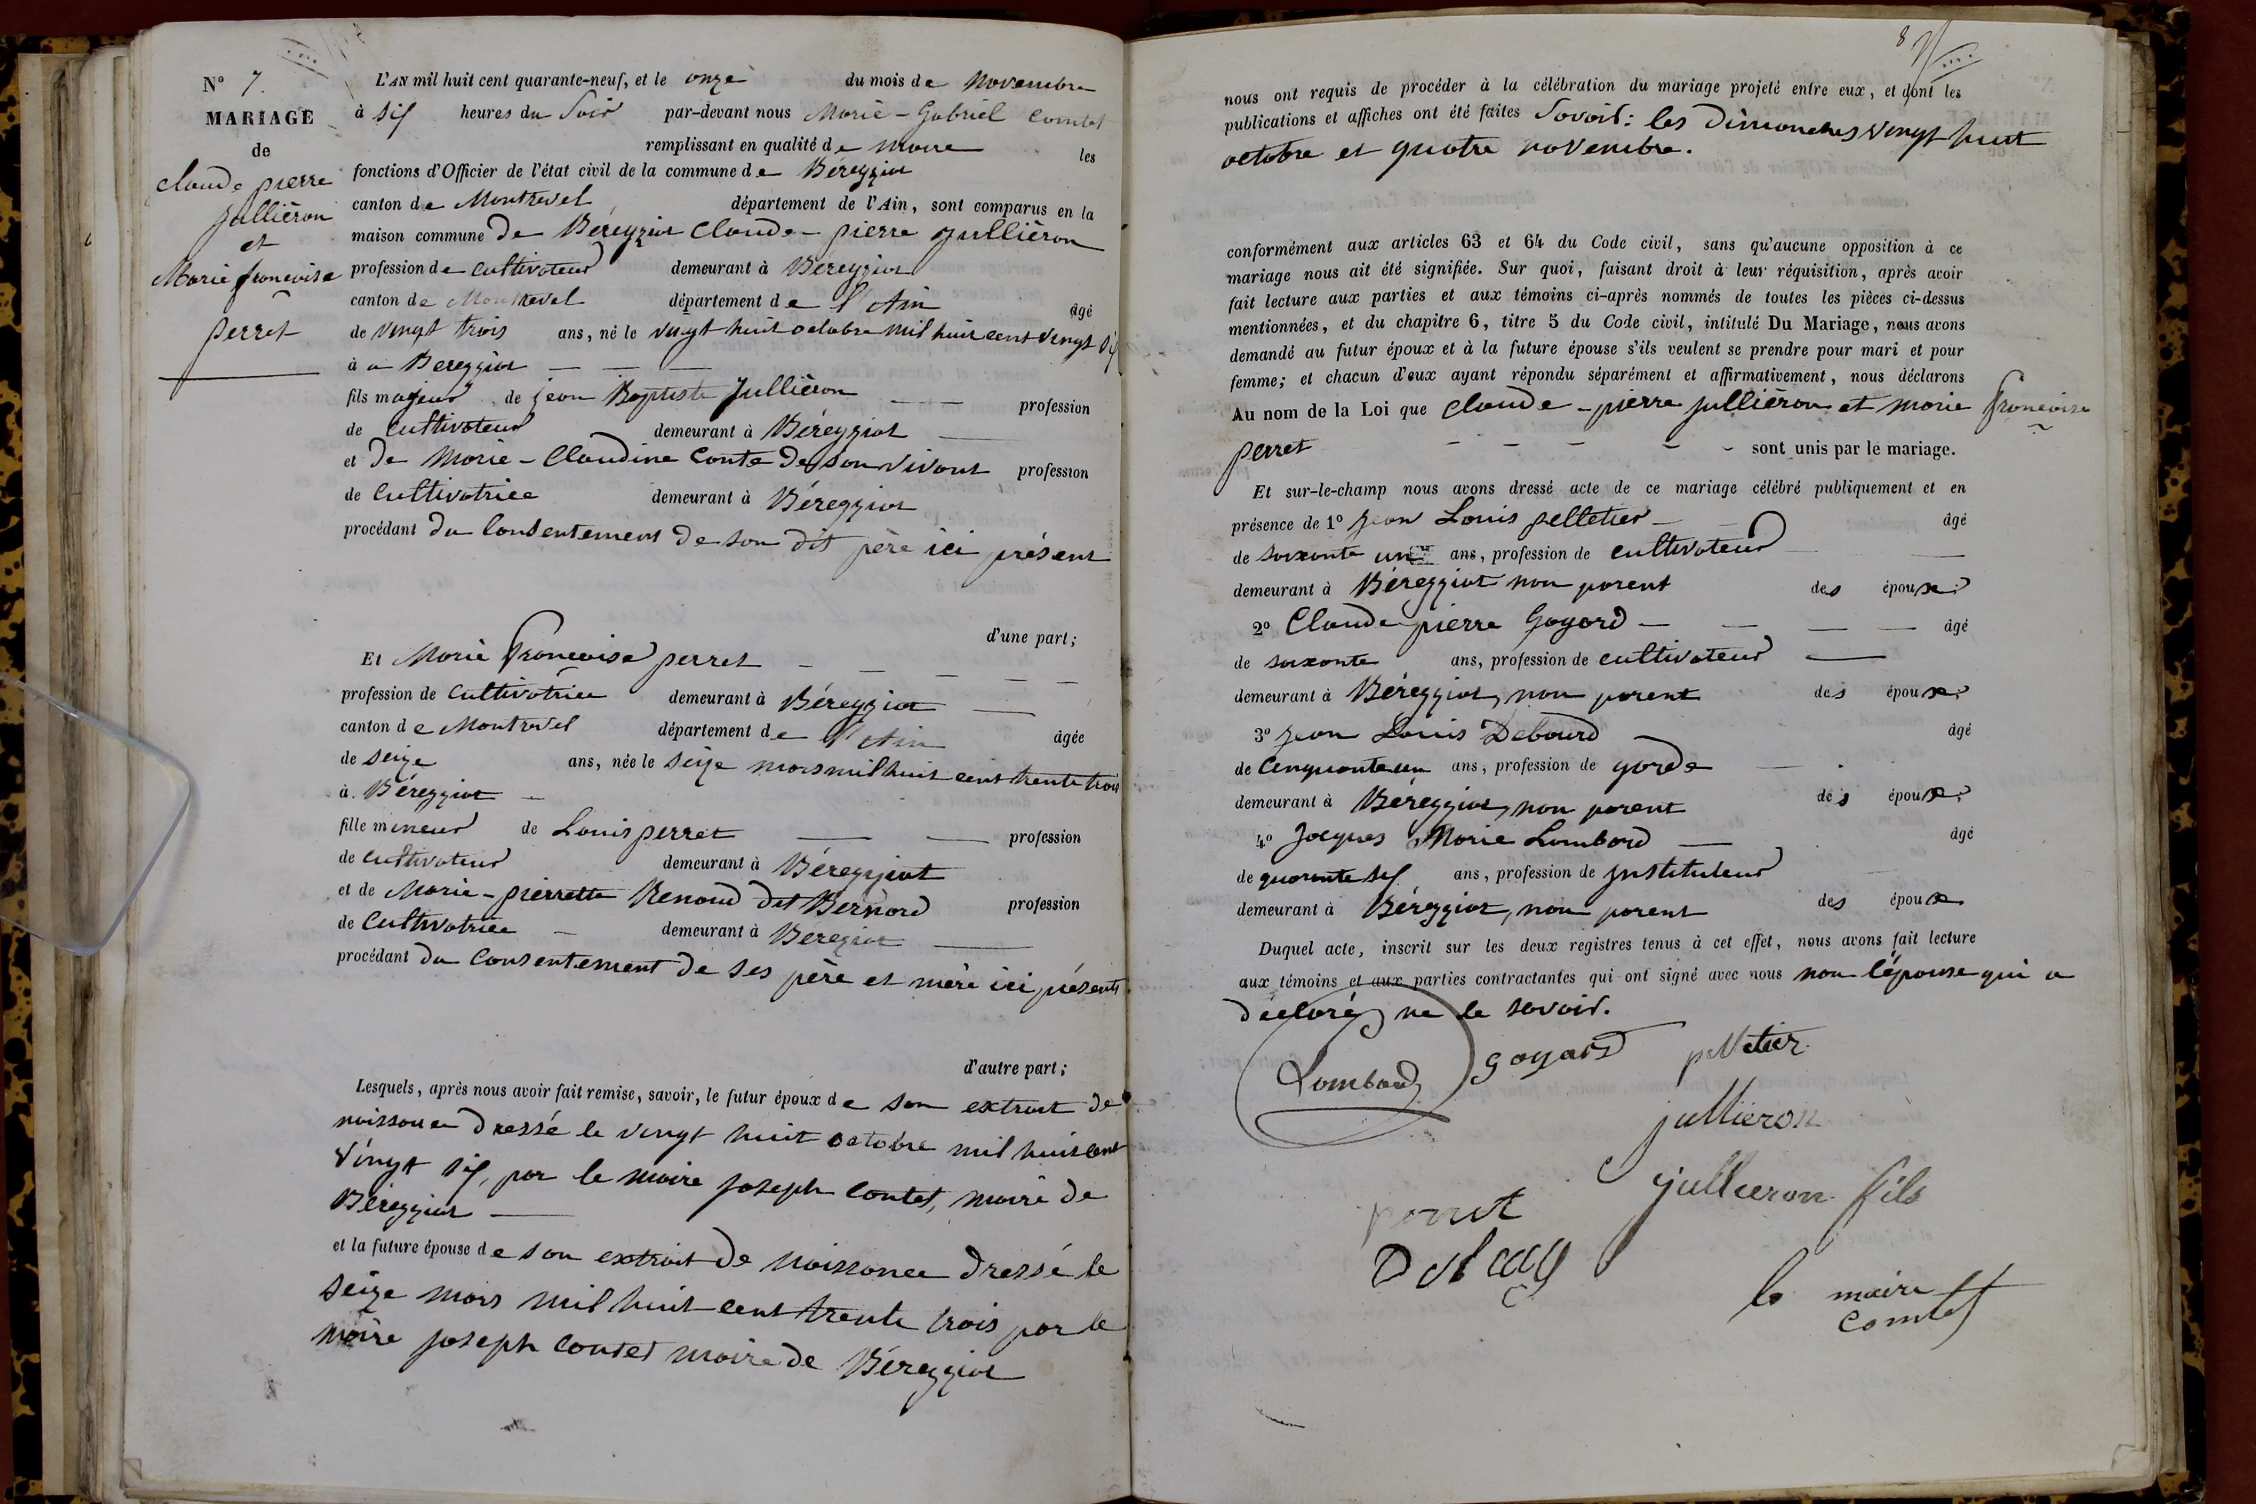 N° 7.
MARIAGE
de
Claude pierre
Jullièron
et
Marie francoise
perret
L'AN mil huit cent quarante-neuf, et le onze du mois de Novembre
à six heures du Soir par-devant nous Marie-Gabriel Comtet
remplissant en qualité de maire les
fonctions d'Officier de l'état civil de la commune de Béreyziat
canton de Montrevel département de l'Ain, sont comparus en la
maison commune de Béreyziat Claude-pierre Jullièron
profession de cultivateur demeurant à Béreyziat
canton de Montrevel département de l'Ain âgé
de vingt trois ans, né le vingt huit octobre mil huit cent vingt six
à a Bereyziat
fils majeur de jean Baptiste Jullièron profession
de cultivateur demeurant à Béreyziat
et de Marie-Claudine Conte de son vivant profession
de Cultivatrice demeurant à Béreyziat
procédant du Consentement de son dit père ici présent
d'une part;
Et Marie francoise perret
profession de Cultivatrice demeurant à Béreyziat
canton de Montrevel département de l'Ain âgée
de seize ans, née le seize mars mil huit cent trente trois
à Béreyziat
fille mineur de Louis perret profession
de cultivateur demeurant à Béreyziat
et de Marie-pierrette Renoud dit Bernard profession
de Cultivatrice demeurant à Bereziat
procédant du Consentement de ses père et mère ici présents
d'autre part;
Lesquels, après nous avoir fait remise, savoir, le futur époux de son extrait de
naissance dressé le vingt huit octobre mil huit cent
vingt six, par le maire joseph Contet, maire de
Béreyziat
et la future épouse de son extrait de naissance dressé le
seize mars mil huit cent trente trois par le
maire joseph Contet maire de Béreyziat
8
nous ont requis de procéder à la célébration du mariage projeté entre eux, et dont les
publications et affiches ont été faites Savoir: les dimanches vingt huit
octobre et quatre novembre.
conformément aux articles 63 et 64 du Code civil, sans qu'aucune opposition à ce
mariage nous ait été signifiée. Sur quoi, faisant droit à leur réquisition, après avoir
fait lecture aux parties et aux témoins ci-après nommés de toutes les pièces ci-dessus
mentionnées, et du chapitre 6, titre 5 du Code civil, intitulé Du Mariage, nous avons
demandé au futur époux et à la future épouse s'ils veulent se prendre pour mari et pour
femme; et chacun d'eux ayant répondu séparément et affirmativement, nous déclarons
Au nom de la Loi que Claude-pierre jullièron et marie francoise
perret sont unis par le mariage.
Et sur-le-champ nous avons dressé acte de ce mariage célébré publiquement et en
présence de 1° jean Louis pelletier âgé
de soixante un ans, profession de cultivateur
demeurant à Béreyziat non parent des époux
2° Claude pierre Goyard âgé
de soixante ans, profession de cultivateur
demeurant à Béreyziat, non parent des époux
3° jean Louis Debourd âgé
de Cinquante un ans, profession de garde
demeurant à Béreyziat, non parent des époux
4° Jacques Marie Lombard âgé
de quarante six ans, profession de instituteur
demeurant à Béreyziat, non parent des époux
Duquel acte, inscrit sur les deux registres tenus à cet effet, nous avons fait lecture
aux témoins et aux parties contractantes qui ont signé avec nous non l'épouse qui a
déclaré ne le savoir.
Lombard goyard pelletier
jullieron
jullieron fils
perret
le maire
Comtet